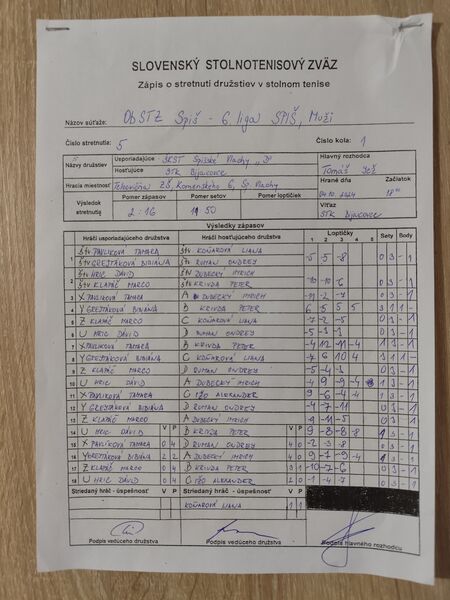 SLOVENSKÝ STOLNOTENISOVÝ ZVÄZ
Zápis o stretnutí družstiev v stolnom tenise
Názov súťaže: ObSTZ Spiš - 6. liga SPIŠ, Muži
Číslo stretnutia: 5 Číslo kola: 1
Názvy družstiev Usporiadajúce SKST Spišské Vlachy „B" Hlavný rozhodca
Hosťujúce STK Bijacovce Tomáš
Hracia miestnosť Telocvičňa ZŠ, Komenského 6, Sp. Vlachy Hrané dňa Začiatok
Výsledok stretnutia Pomer zápasov Pomer setov Pomer loptičiek 04.10.2024 18
2:16 11 50 Víťaz
STK Bijacovce
Výsledky zápasov
Hráči usporiadajúceho družstva Hráči hosťujúceho družstva Loptičky Sety Body
1 2 3 4 5
1 štv PAVLIKOVÁ TAMARA štv KOŇAROVÁ LIANA -5 -5 -8 0 3 - 1
štv GREJTÁKOVÁ BIBIÁNA štv RUMAN ONDREJ
2 štv HRIC DÁVID štv DUBECKÝ IMRICH
štv KLAPÁČ MARCO štv KRIVDA PETER -10 -10 -6 0 3 - 1
3 X PAVLIKOVÁ TAMARA A DUBECKÝ IMRICH -11 -2 -7 0 3 - 1
4 Y GREJTÁKOVÁ BIBIÁNA B KRIVDA PETER 6 5 5 5 3 1 1 -
5 Z KLAPÁČ MARCO C KOŇAROVÁ LIANA -7 -2 -5 0 3 - 1
6 U HRIC DÁVID D RUMAN ONDREJ -5 -3 -3 0 3 - 1
7 X PAVLIKOVÁ TAMARA B KRIVDA PETER -4 12 -11 -4 1 3 - 1
8 Y GREJTÁKOVÁ BIBIÁNA C KOŇAROVÁ LIANA -7 6 10 4 3 1 1 -
9 Z KLAPÁČ MARCO D RUMAN ONDREJ -5 -4 -3 0 3 - 1
10 U HRIC DÁVID A DUBECKÝ IMRICH -4 9 -9 -4 1 3 - 1
11 X PAVLIKOVÁ TAMARA C ALEXANDER 9 -6 -4 -4 1 3 - 1
12 Y GREJTÁKOVÁ BIBIÁNA D RUMAN ONDREJ -4 -7 -11 0 3 - 1
13 Z KLAPÁČ MARCO A DUBECKÝ IMRICH -9 -11 -5 0 3 - 1
14 U HRIC DÁVID V P B KRIVDA PETER V P 9 -8 -8 -8 1 3 - 1
15 X PAVLIKOVÁ TAMARA 0 4 D RUMAN ONDREJ 4 0 -2 -3 -8 0 3 - 1
16 Y GREJTÁKOVÁ BIBIÁNA 2 2 A DUBECKÝ IMRICH 4 0 -9 -7 -9 -4
17 Z KLAPÁČ MARCO 0 4 B KRIVDA PETER 3 1 -10 -7 -6 0 3 - 1
18 U HRIC DÁVID 0 4 C ALEXANDER 2 0
Striedaný hráč - úspešnosť V P Striedaný hráč - úspešnosť V P
KOŇAROVÁ LIANA 1 1
Podpis vedúceho družstva Podpis vedúceho družstva Podpis hlavného rozhodcu